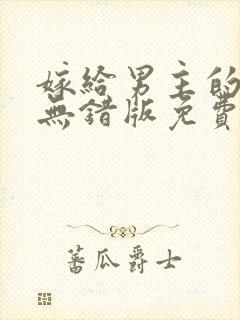 嫁給男主的
無錯版免費
蕃瓜爵士